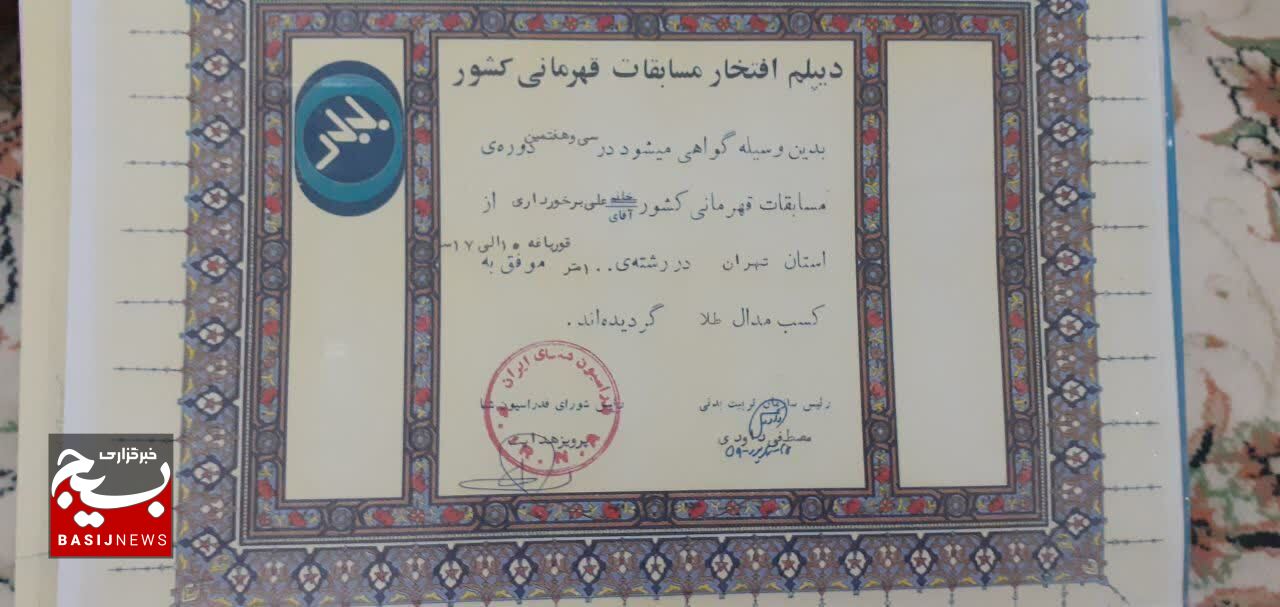 دیپلم افتخار مسابقات قهرمانی کشور
بدین وسیله گواهی میشود در سی و هفتمین دوره‌ی
مسابقات قهرمانی کشور خانم علی برخورداری از
آقای
استان تهران در رشته‌ی ۱۰۰متر قورباغه ۱۵الی ۱۷سـ موفق به
کسب مدال طلا گردیده‌اند.
رئیس سازمان تربیت بدنی
مصطفی داودی
رئیس شورای فدراسیون شنا
پرویز هدایت
فدراسیون شنای ایران
خبرگزاری
بسیج
BASIJNEWS